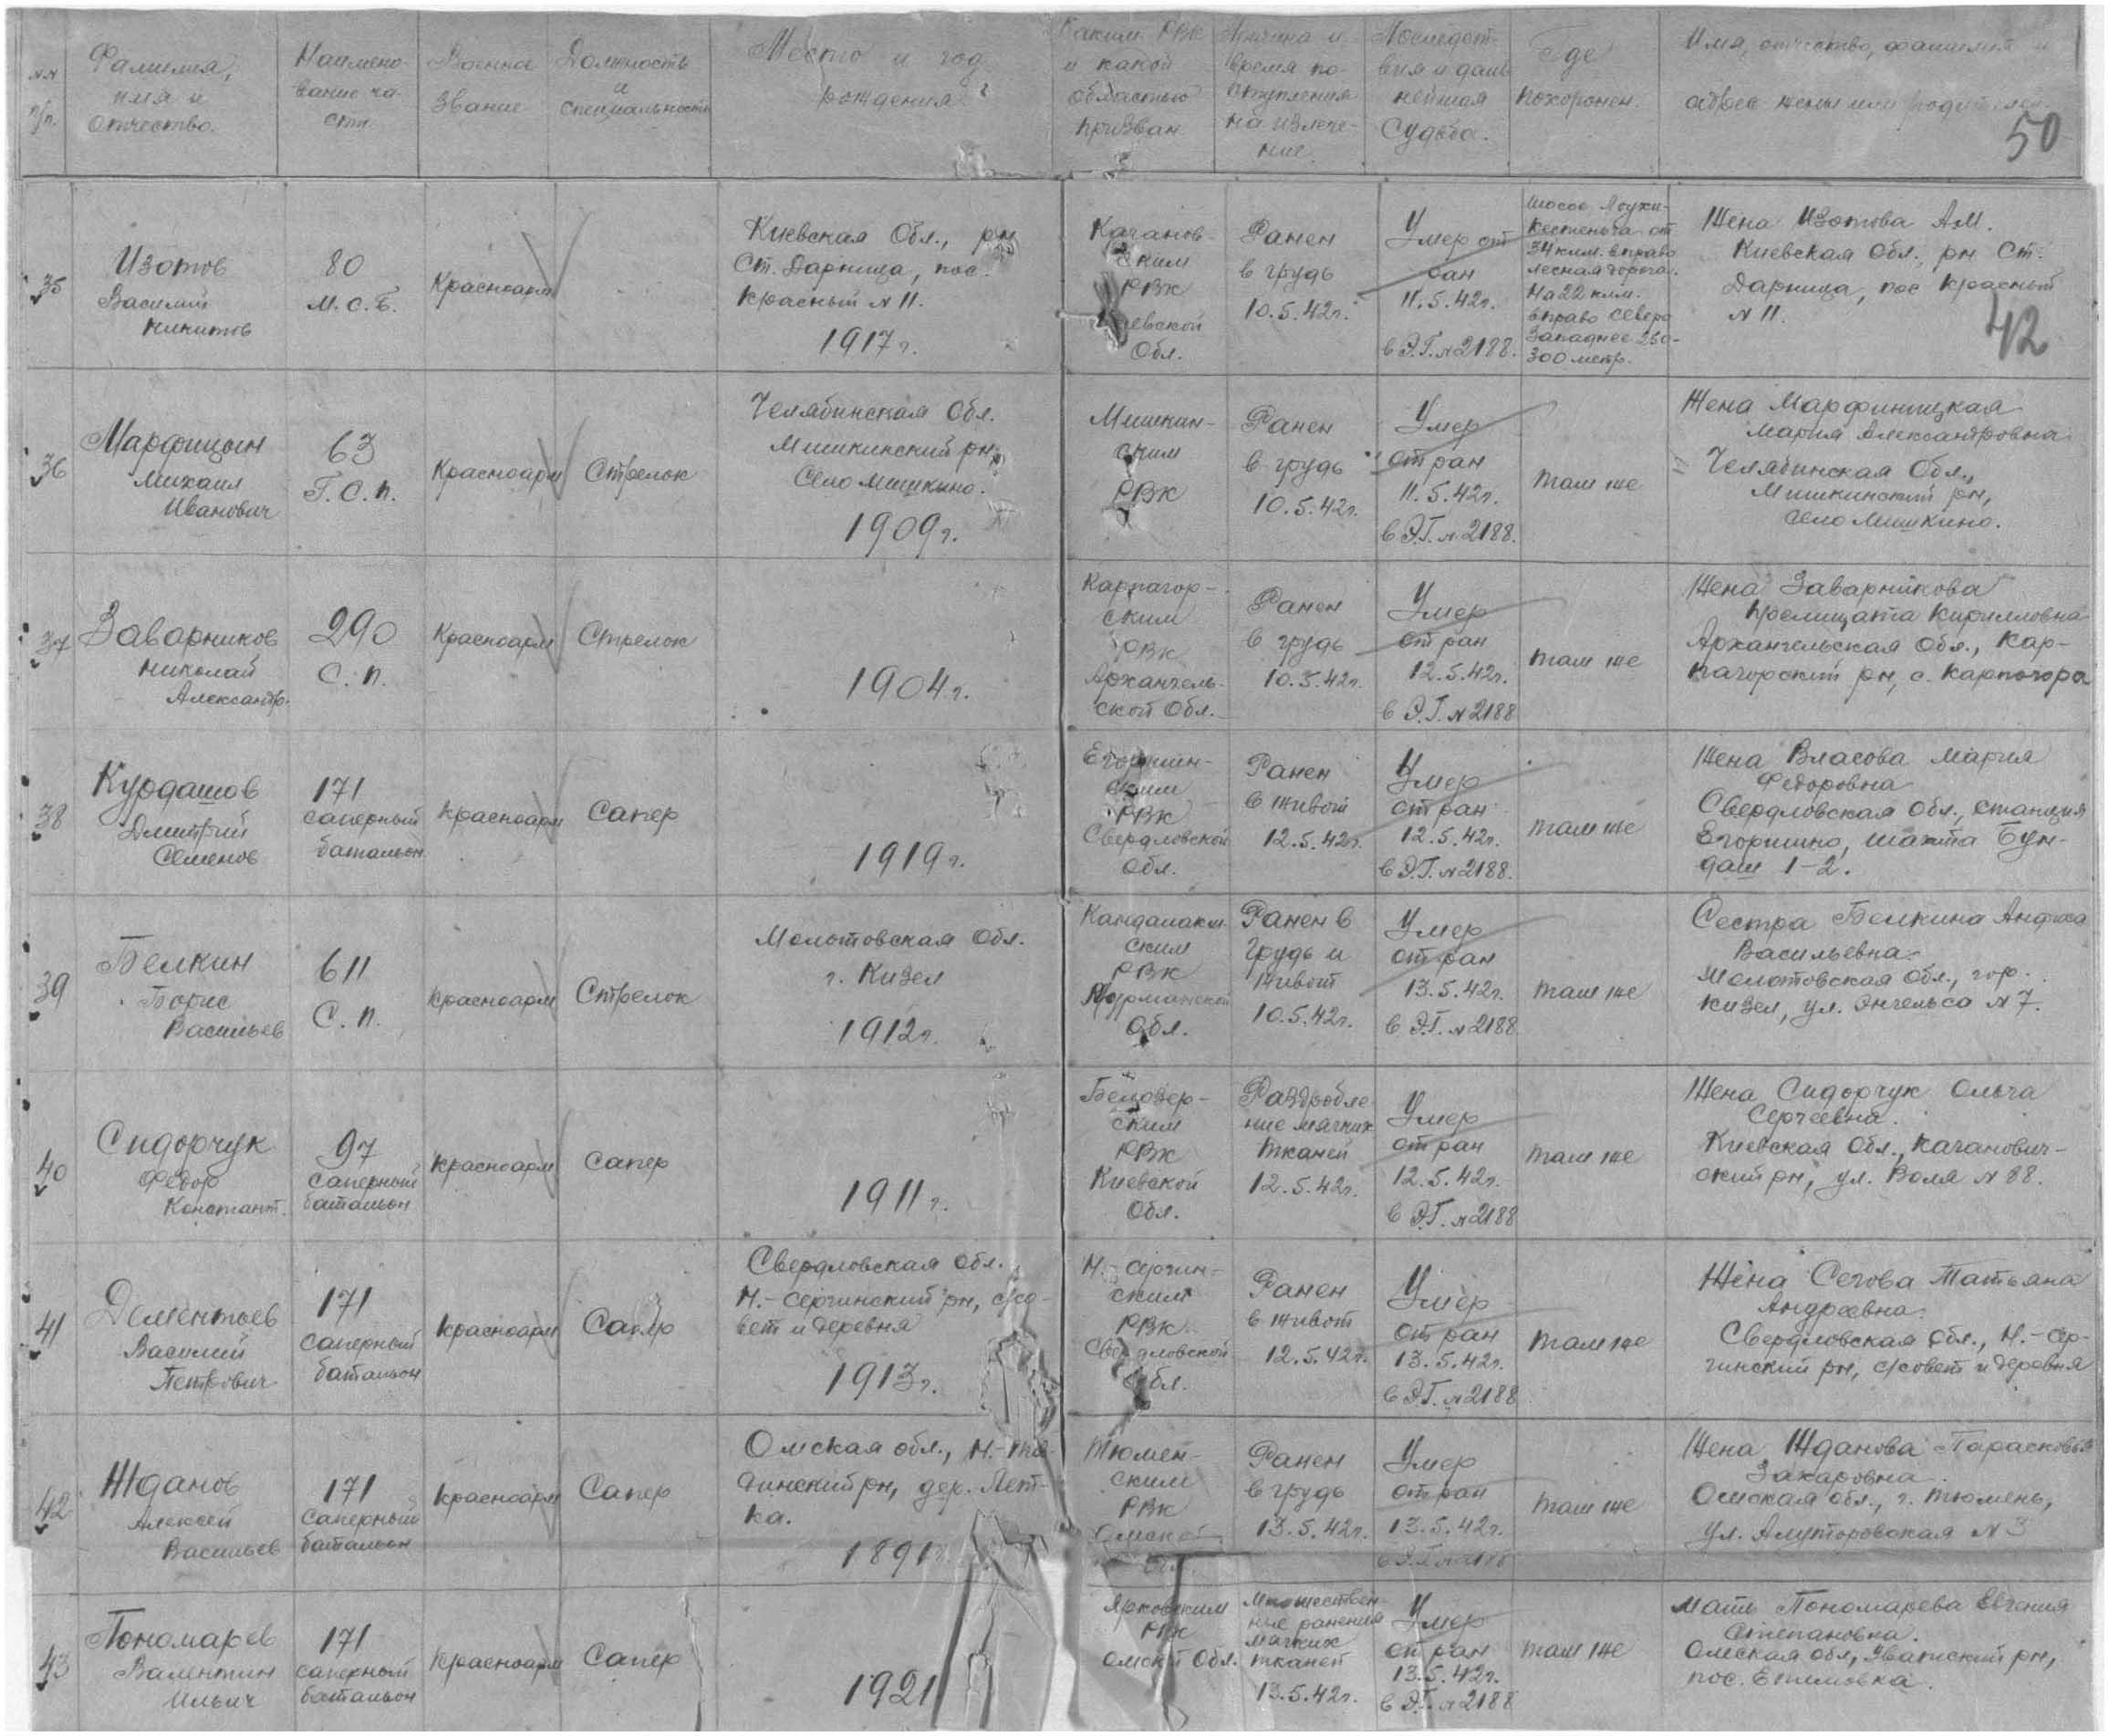 №№ п/п.
Фамилия,
имя и
отчество.
Наимено-
вание ча-
сти
Военное
звание
Должность
и
специальность
Место и год
рождения
Каким РВК
и какой
областью
призван
Причина и
время по-
ступления
на излече-
ние.
Последст-
вия и даль
нейшая
судьба.
Где
похоронен.
Имя, отчество, фамилия и
адрес жены или родителей.
50
35
Изотов
Василий
Никитов
80
М.С.Б.
Красноарм
Киевская Обл., рн
Ст. Дарница, пос.
Красный N 11.
1917 г.
Качанов-
ским
РВК
Обл.
Ранен
в грудь
10.5.42г.
Умер от
ран
11.5.42г.
в Э.Г. N 2188.
шоссе Лоухи-
Кестеньга от
34 клм. вправо
лесная дорога.
На 22 клм.
вправо Северо
Западнее 250-
300 метр.
Жена Изотова А.М.
Киевская Обл., рн Ст.
Дарница, пос Красный
N 11.
42
36
Марфицын
Михаил
Иванович
63
Г.С.п.
Красноарм
Стрелок
Челябинская Обл.
Мишкинский рн,
Село Мишкино.
1909г.
Мишкин-
ским
РВК
Ранен
в грудь
10.5.42г.
Умер
от ран
11.5.42г.
в Э.Г. N 2188.
там же
Жена
Мария Александровна
Челябинская Обл.,
Мишкинский рн,
село Мишкино.
37
Заварников
Николай
Александр.
290
С.п.
Красноарм
Стрелок
1904г.
Карпагор-
ским
РВК
Архангель-
ской Обл.
Ранен
в грудь
10.5.42г.
Умер
от ран
12.5.42г.
в Э.Г. N 2188
там же
Жена Заварникова
Кирилловна
Архангельская Обл., Кар-
пагорский рн, с. Карпогора
38
Курдашов
Дмитрий
Семенов
171
саперный
батальон
Красноарм
Сапер
1919г.
Егоршин-
ским
РВК
Свердловской
Обл.
Ранен
в живот
12.5.42г.
Умер
от ран
12.5.42г.
в Э.Г. N 2188.
там же
Жена Власова Мария
Федоровна
Свердловская Обл., станция
Егоршино, шахта Бун-
даш 1-2.
39
Белкин
Борис
Васильев
611
С.п.
Красноарм
Стрелок
Молотовская Обл.
г. Кизел
1912г.
Кандалакш
ским
РВК
Мурманской
Обл.
Ранен в
грудь и
живот
10.5.42г.
Умер
от ран
13.5.42г.
в Э.Г. N 2188
там же
Сестра Белкина
Васильевна.
Молотовская Обл., гор.
Кизел, ул. Энгельса N 7.
40
Сидорчук
Федор
Констант.
97
саперный
батальон
Красноарм
Сапер
1911г.
Белозер-
ским
РВК
Киевской
Обл.
Раздробле-
ние мягких
тканей
12.5.42г.
Умер
от ран
12.5.42г.
в Э.Г. N 2188
там же
Жена Сидорчук Ольга
Сергеевна.
Киевская Обл., Каганович-
ский рн, ул. Воля N 88.
41
Дементьев
Василий
Петрович
171
саперный
батальон
Красноарм
Сапер
Свердловская Обл.
Н.-Сергинский рн, с/со-
вет и деревня
1913г.
Н. Сергин-
ским
РВК
Свердловской
Обл.
Ранен
в живот
12.5.42г.
Умер
от ран
13.5.42г.
в Э.Г. N 2188
там же
Жена Сегова Татьяна
Андреевна.
Свердловская обл., Н.-Сер-
гинский рн, с/совет и деревня
42
Жданов
Алексей
Васильев
171
саперный
батальон
Красноарм
Сапер
Омская обл., Н.-Тав-
динский рн, дер. Лет-
ка.
1891г.
Тюмен-
ским
РВК
Омской
Обл.
Ранен
в грудь
13.5.42г.
Умер
от ран
13.5.42г.
в Э.Г. N 2188
там же
Жена Жданова Парасковья
Захаровна.
Омская обл., г. Тюмень,
ул. Алуторовская N 3
43
Пономарев
Валентин
Ильич
171
саперный
батальон
Красноарм
Сапер
1921
Ярковским
РВК
Омской Обл.
Множествен-
ные ранения
мягких
тканей
13.5.42г.
Умер
от ран
13.5.42г.
в Э.Г. N 2188
там же
Мать Пономарева Евгения
Степановна.
Омская обл, Уватский рн,
пос. Епимовка.